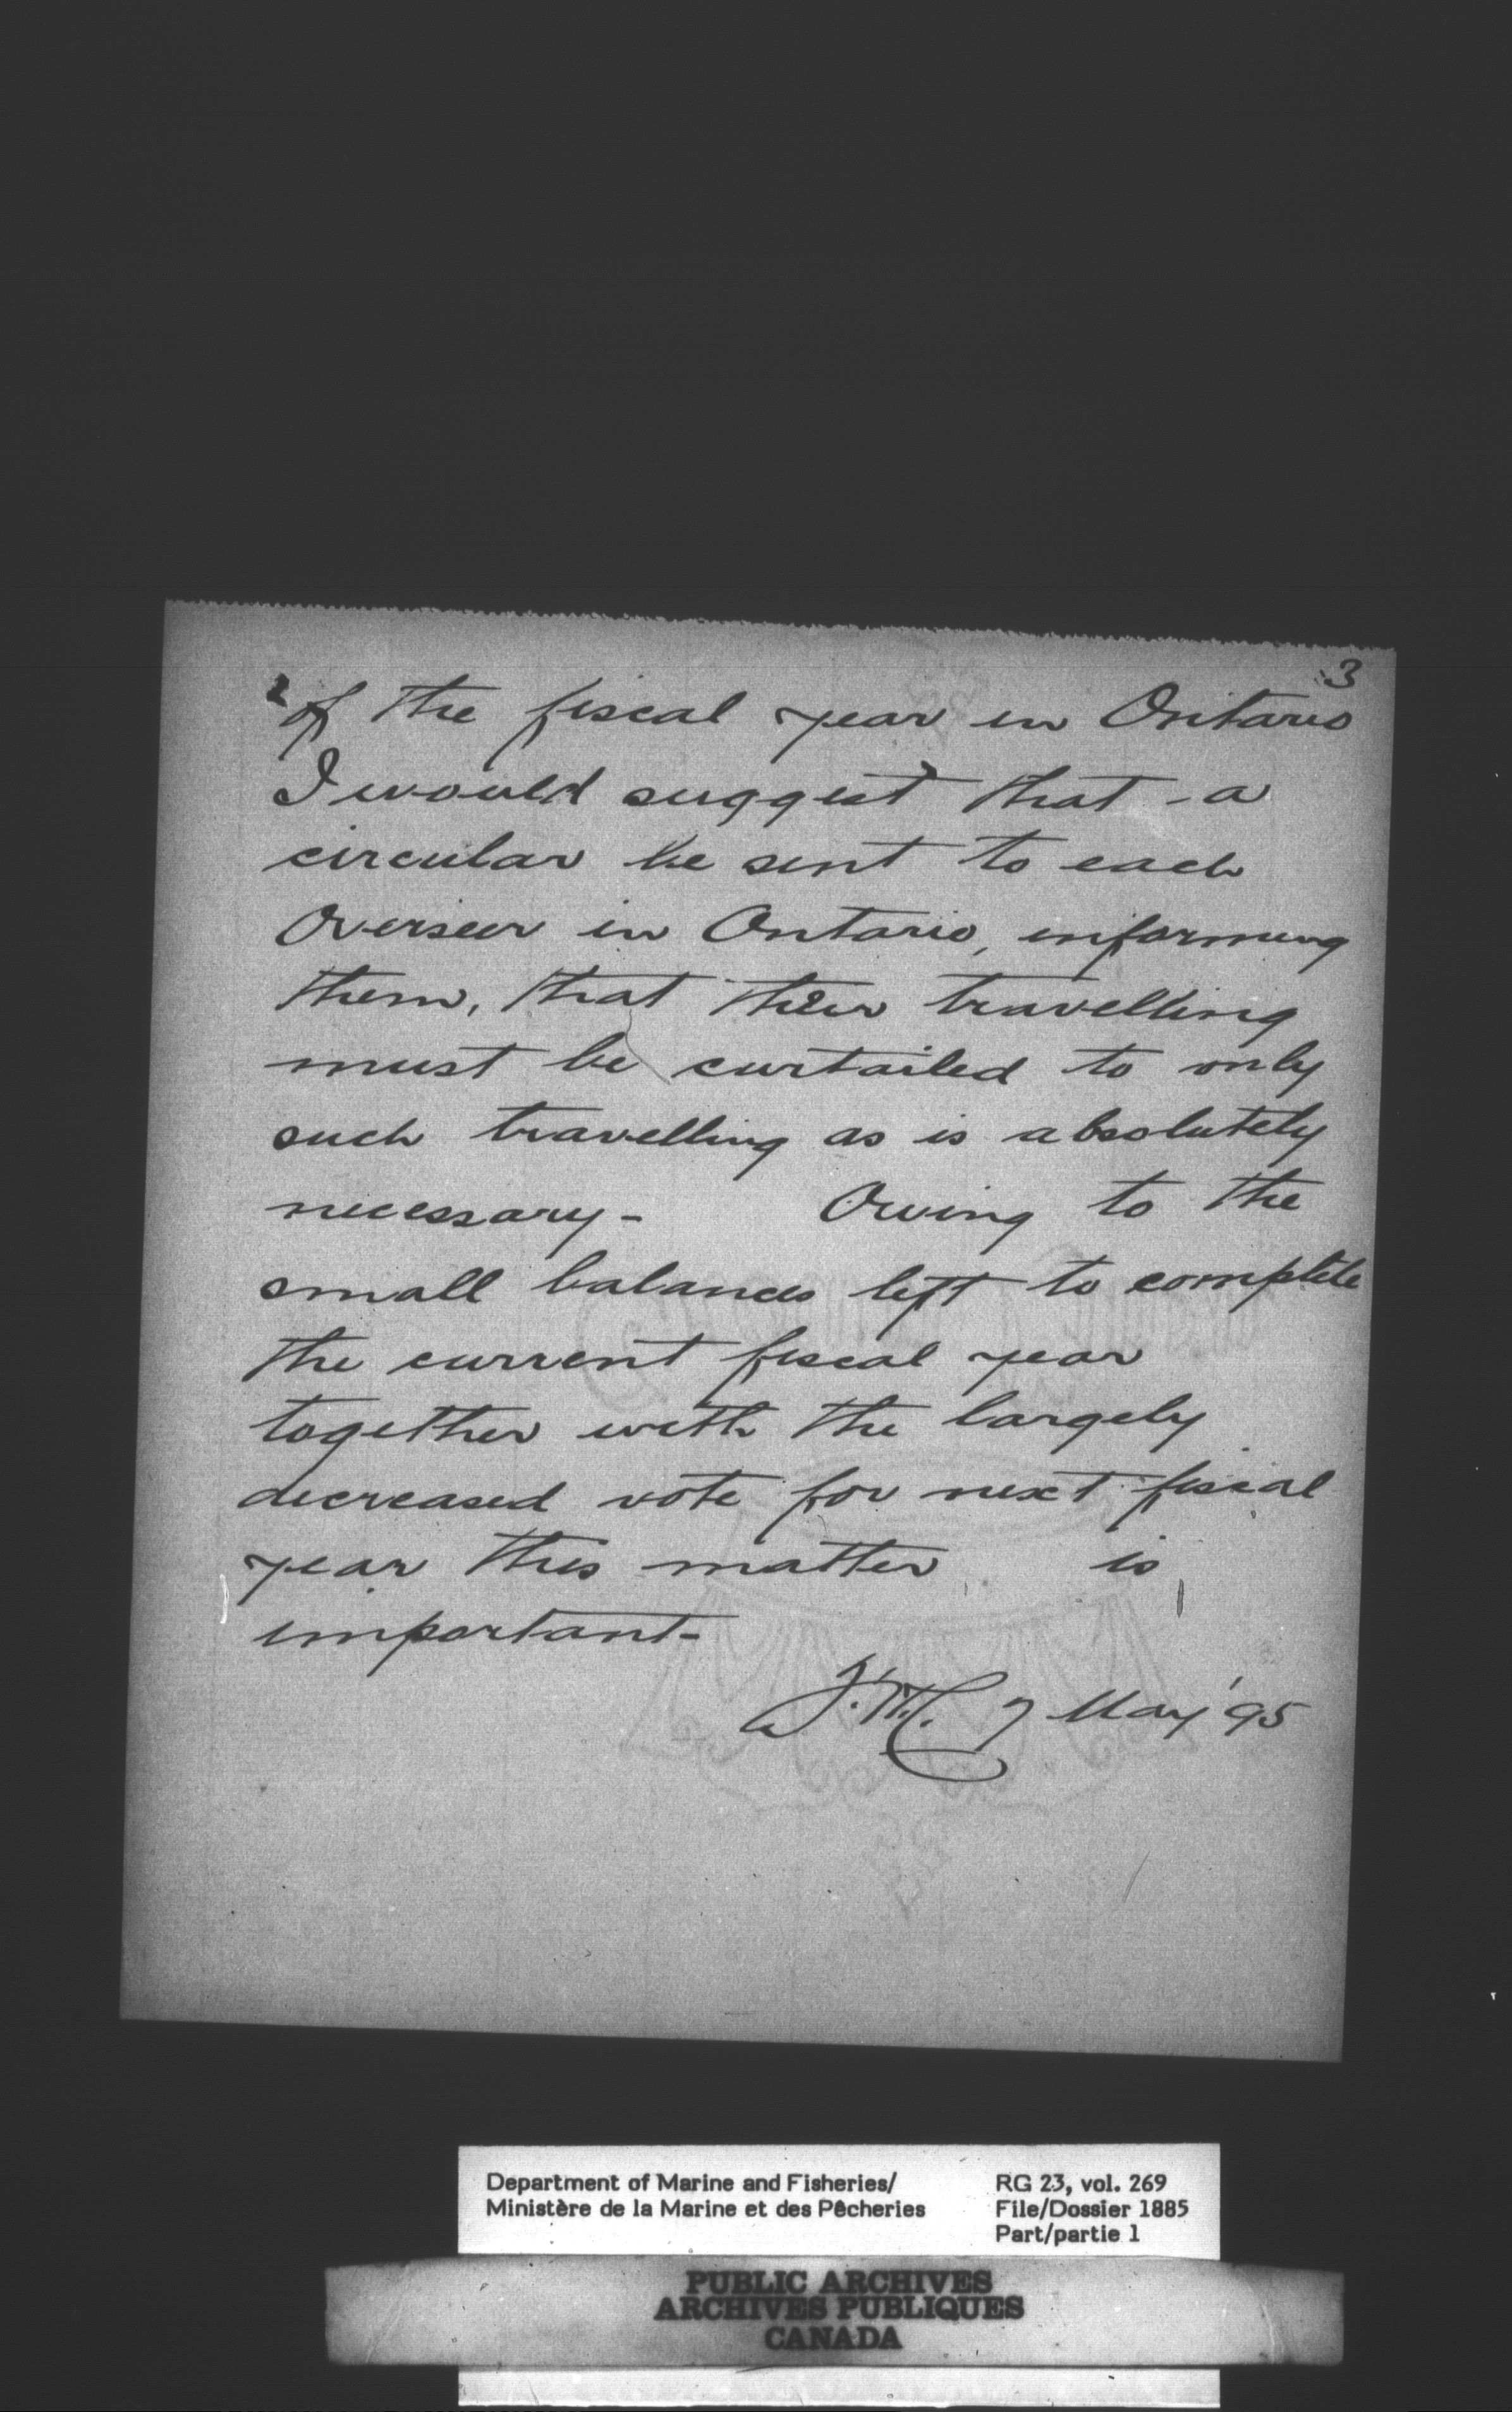 3
of the fiscal year in Ontario
I would suggest that a
circular be sent to each
Overseer in Ontario, informing
them, that their travelling
must be curtailed to only
such travelling as is absolutely
necessary - Owing to the
small balances left to complete
the current fiscal year
together with the largely
decreased vote for next fiscal
year this matter is
important -
7 May '95
Department of Marine and Fisheries/
Ministère de la Marine et des Pêcheries
RG 23, vol. 269
File/Dossier 1885
Part/partie 1
PUBLIC ARCHIVES
ARCHIVES PUBLIQUES
CANADA